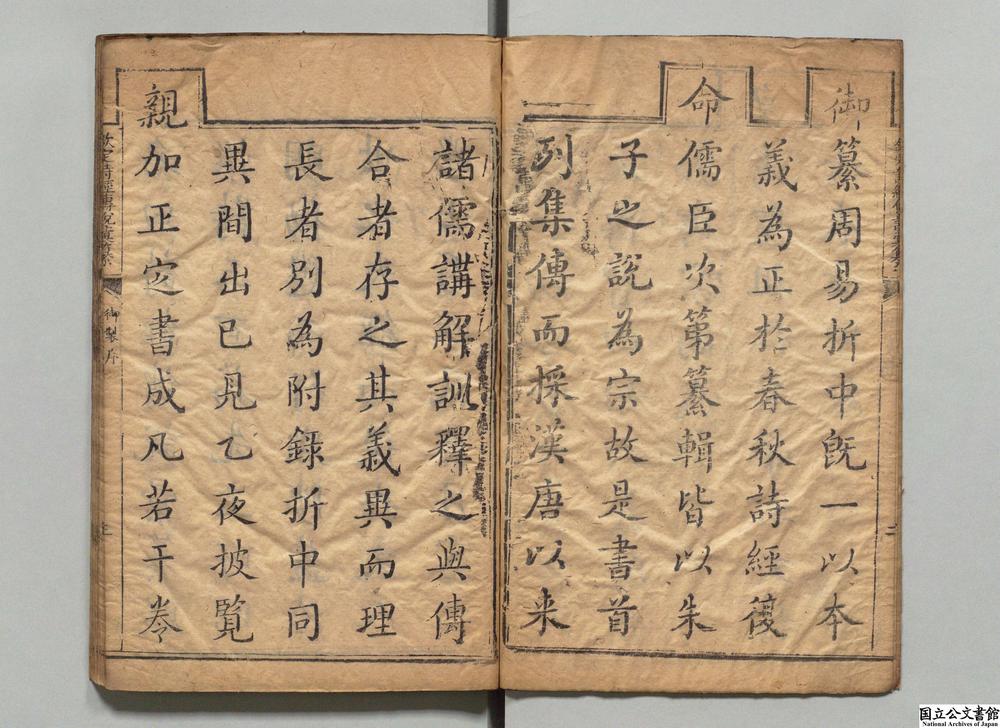 御纂周易折中既一以本
義為正於春秋詩經復
命儒臣次第纂輯皆以朱
子之說為宗故是書首
列集傳而採漢唐以来
諸儒講解訓釋之與傳
合者存之其義異而理
長者別為附錄折中同
異間出己見乙夜披覽
親加正定書成凡若干卷
欽定詩經傳說彙纂
御製序
国立公文書館
National Archives of Japan